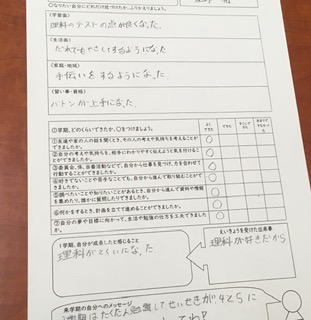 ○なりたい自分にどれだけ近づけたか、ふりかえりましょう。
(学習面)
理科のテストの点が良くなった。
(生活面)
だれでもやさしくするようになった
(家庭・地域)
手伝いをするようになった。
(習い事・資格)
バトンが上手になった。
○1学期、どのくらいできたか、○をつけましょう。
よくできた
できた
すこしできた
①友達や家の人の話を聞くとき、その人の考えや気持ちを考えることができましたか。
②自分の考えや気持ちを、相手にわかりやすく伝えようと気を付けることができましたか。
③委員会、係、当番活動などで、自分から仕事を見つけ、力を合わせて行動することができましたか。
④好きでないことや苦手なことでも、自分から進んで取り組むことができましたか。
⑤調べたいことや知りたいことがあるとき、自分から進んで資料や情報を集めたり、誰かに質問したりできましたか。
⑥何かをするとき、計画を立てて進めることができましたか。
⑦自分の夢や目標に向かって、生活や勉強の仕方を工夫できましたか。
1学期、自分が成長したと感じること
理科がとくいになった
えいきょうを受けた出来事
理科が好きだから
来学期の自分へのメッセージ